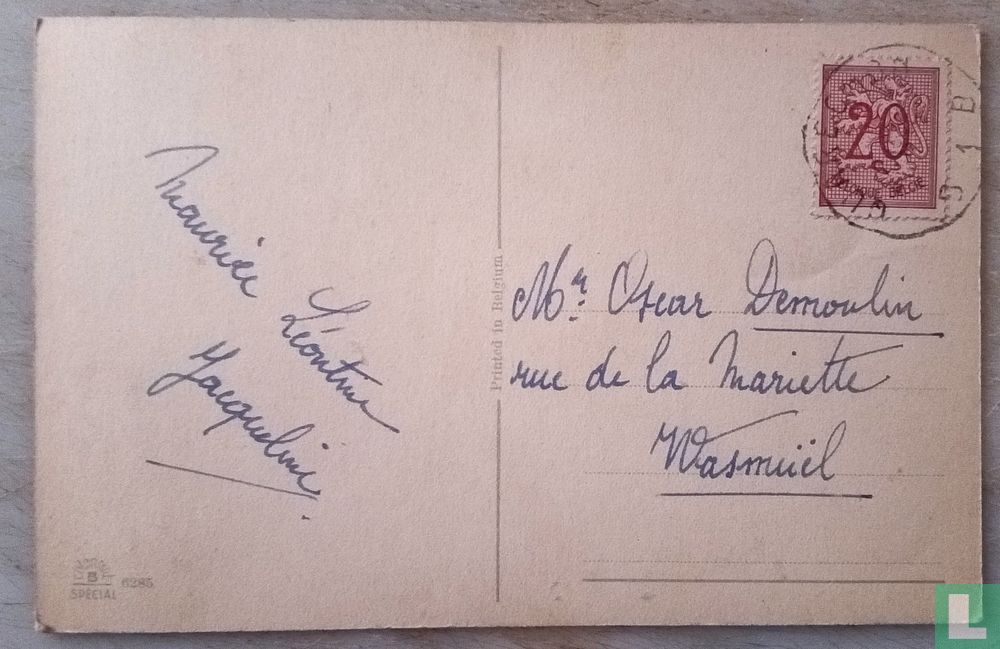 Maurice
Léontine
Jacqueline.
Printed in Belgium
Mr. Oscar Demoulin
rue de la Mariette
Wasmuël
20
B
SPECIAL
6285
L